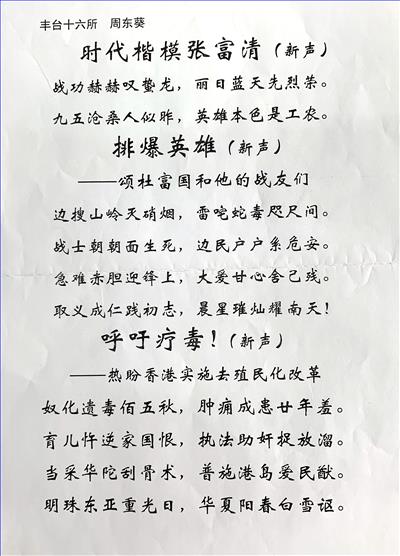 丰台十六所 周东葵
时代楷模张富清(新声)
战功赫赫叹蛰龙，丽日蓝天先烈荣。
九五沧桑人似昨，英雄本色是工农。
排爆英雄(新声)
——颂杜富国和他的战友们
边搜山岭天硝烟，雷咤蛇毒咫尺间。
战士朝朝面生死，边民户户系危安。
急难赤胆迎锋上，大爱甘心舍己残。
取义成仁践初志，晨星璀灿耀南天！
呼吁疗毒！(新声)
——热盼香港实施去殖民化改革
奴化遗毒佰五秋，肿痈成患廿年羞。
育儿忤逆家国恨，执法助奸捉放溜。
当采华陀刮骨术，普施港岛爱民猷。
明珠东亚重光日，华夏阳春白雪讴。